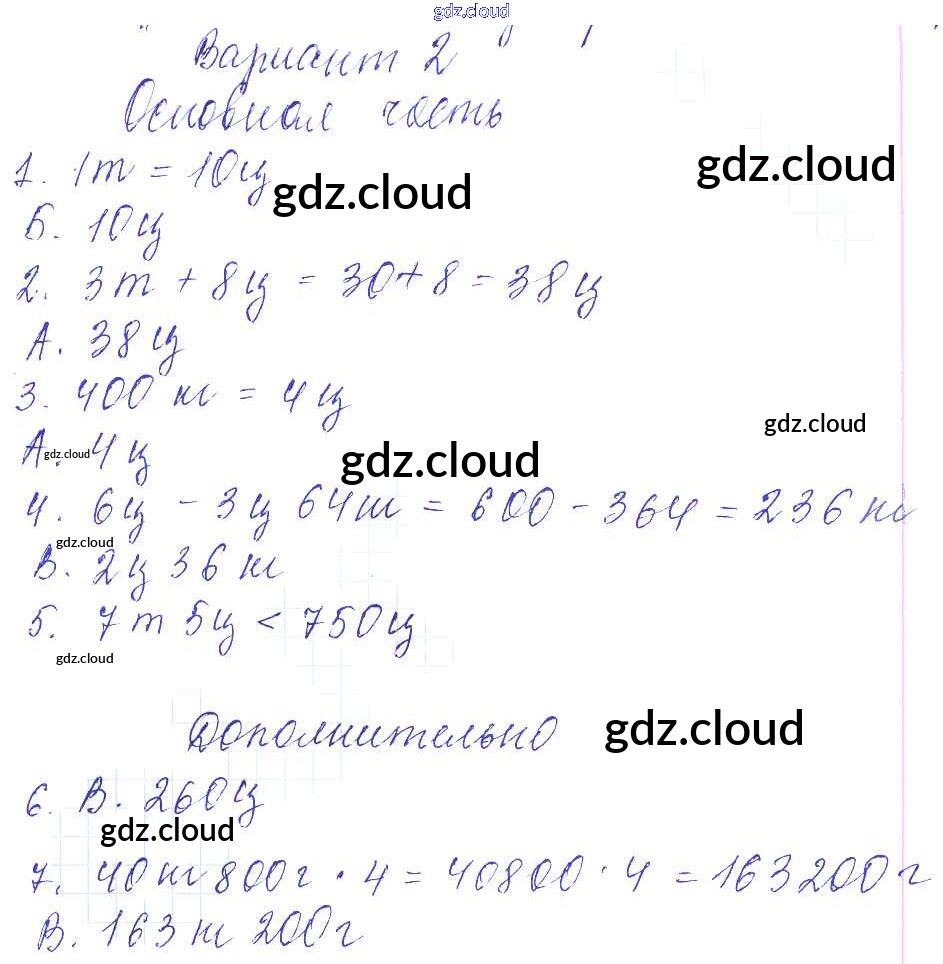 gdz.cloud
Вариант 2
Основная часть
1. 1т = 10ц
gdz.cloud
gdz.cloud
Б. 10ц
2. 3т + 8ц = 30+8 = 38ц
А. 38ц
3. 400 кг = 4ц
gdz.cloud
А. 4ц
gdz.cloud
gdz.cloud
4. 6ц - 3ц 64кг = 600 - 364 = 236 кг
gdz.cloud
В. 2ц 36 кг
5. 7т 5ц < 750ц
gdz.cloud
Дополнительно
gdz.cloud
6. В. 260ц
gdz.cloud
7. 40кг 800г · 4 = 40800 · 4 = 163200г
В. 163кг 200г